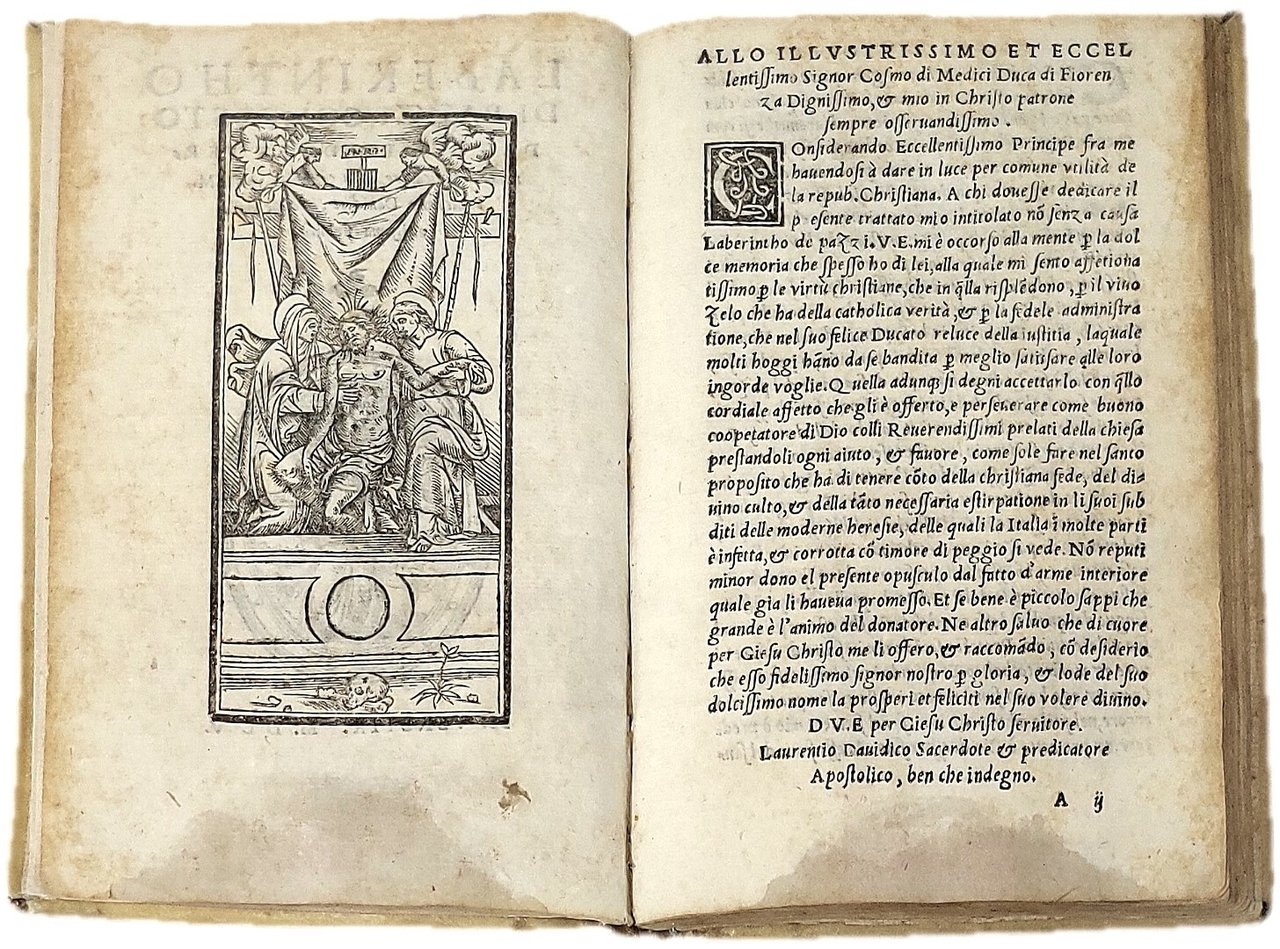 ALLO ILLVSTRISSIMO ET ECCEL
lentissimo Signor Cosmo di Medici Duca di Fioren
za Dignissimo, & mio in Christo patrone
sempre osseruandissimo.
COnsiderando Eccellentissimo Principe fra me
hauendosi à dare in luce per comune vtilità de
la repub. Christiana. A chi douesse dedicare il
p esente trattato mio intitolato nõ senza causa
Laberintho de pazzi. V. E. mi è occorso alla mente ꝑ la dol
ce memoria che spesso ho di lei, alla quale mi sento affetiona
tissimo ꝑ le virtù christiane, che in q̃lla risplẽdono, ꝑ il viuo
zelo che ha della catholica verità, & ꝑ la fedele administra
tione, che nel suo felice Ducato reluce della iustitia, laquale
molti hoggi hãno da se bandita ꝑ meglio satisfare alle loro
ingorde voglie. Quella adunq; si degni accettarlo con q̃llo
cordiale affetto che gli è offerto, e perseuerare come buono
coopetatore di Dio colli Reuerendissimi prelati della chiesa
prestandoli ogni aiuto, & fauore, come sole fare nel santo
proposito che ha di tenere cõto della christiana fede, del di=
uino culto, & della tãto necessaria estirpatione in li suoi sub
diti delle moderne heresie, delle quali la Italia ĩ molte parti
è infetta, & corrotta cõ timore di peggio si vede. Nõ reputi
minor dono el presente opusculo dal fatto d'arme interiore
quale gia li haueua promesso. Et se bene è piccolo sappi che
grande è l'animo del donatore. Ne altro saluo che di cuore
per Giesu Christo me li offero, & raccomãdo, cõ desiderio
che esso fidelissimo signor nostro ꝑ gloria, & lode del suo
dolcissimo nome la prosperi et feliciti nel suo volere diuino.
D V. E per Giesu Christo seruitore.
Laurentio Dauidico Sacerdote & predicatore
Apostolico, ben che indegno.
A ij